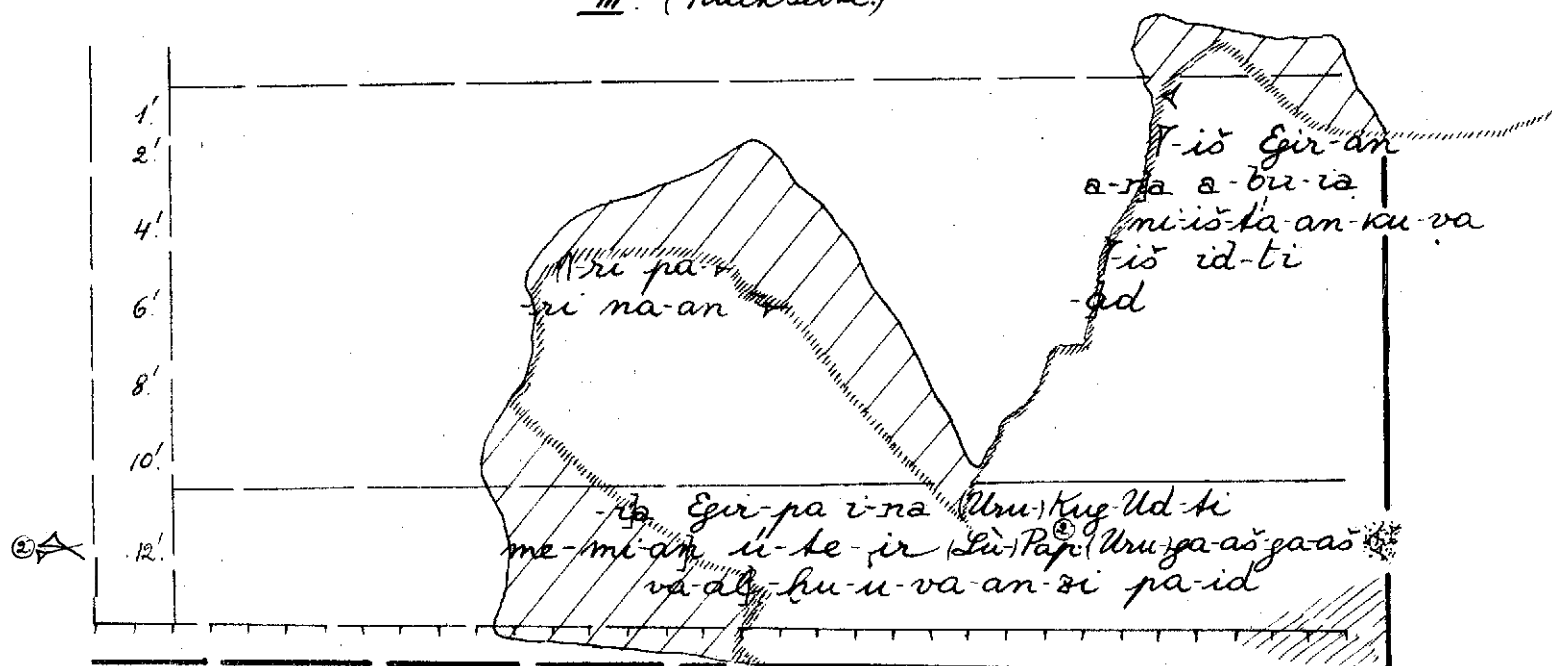 III. (Rückseite.)
1'.
-iš Egir-an
2'.
a-na a-bu-ia
ni-iš-ta-an-ku-va
4'.
-iš id-ti
-ri pa-
-ad
6'.
-ri na-an
8'.
10'.
-ia Egir-pa i-na (Uru-)Kug-Ud-ti
② 12'. me-mi-an ú-te-ir (Lù-)Pap ② (Uru-)ga-aš-ga-aš
va-al-ḫu-u-va-an-zi pa-id